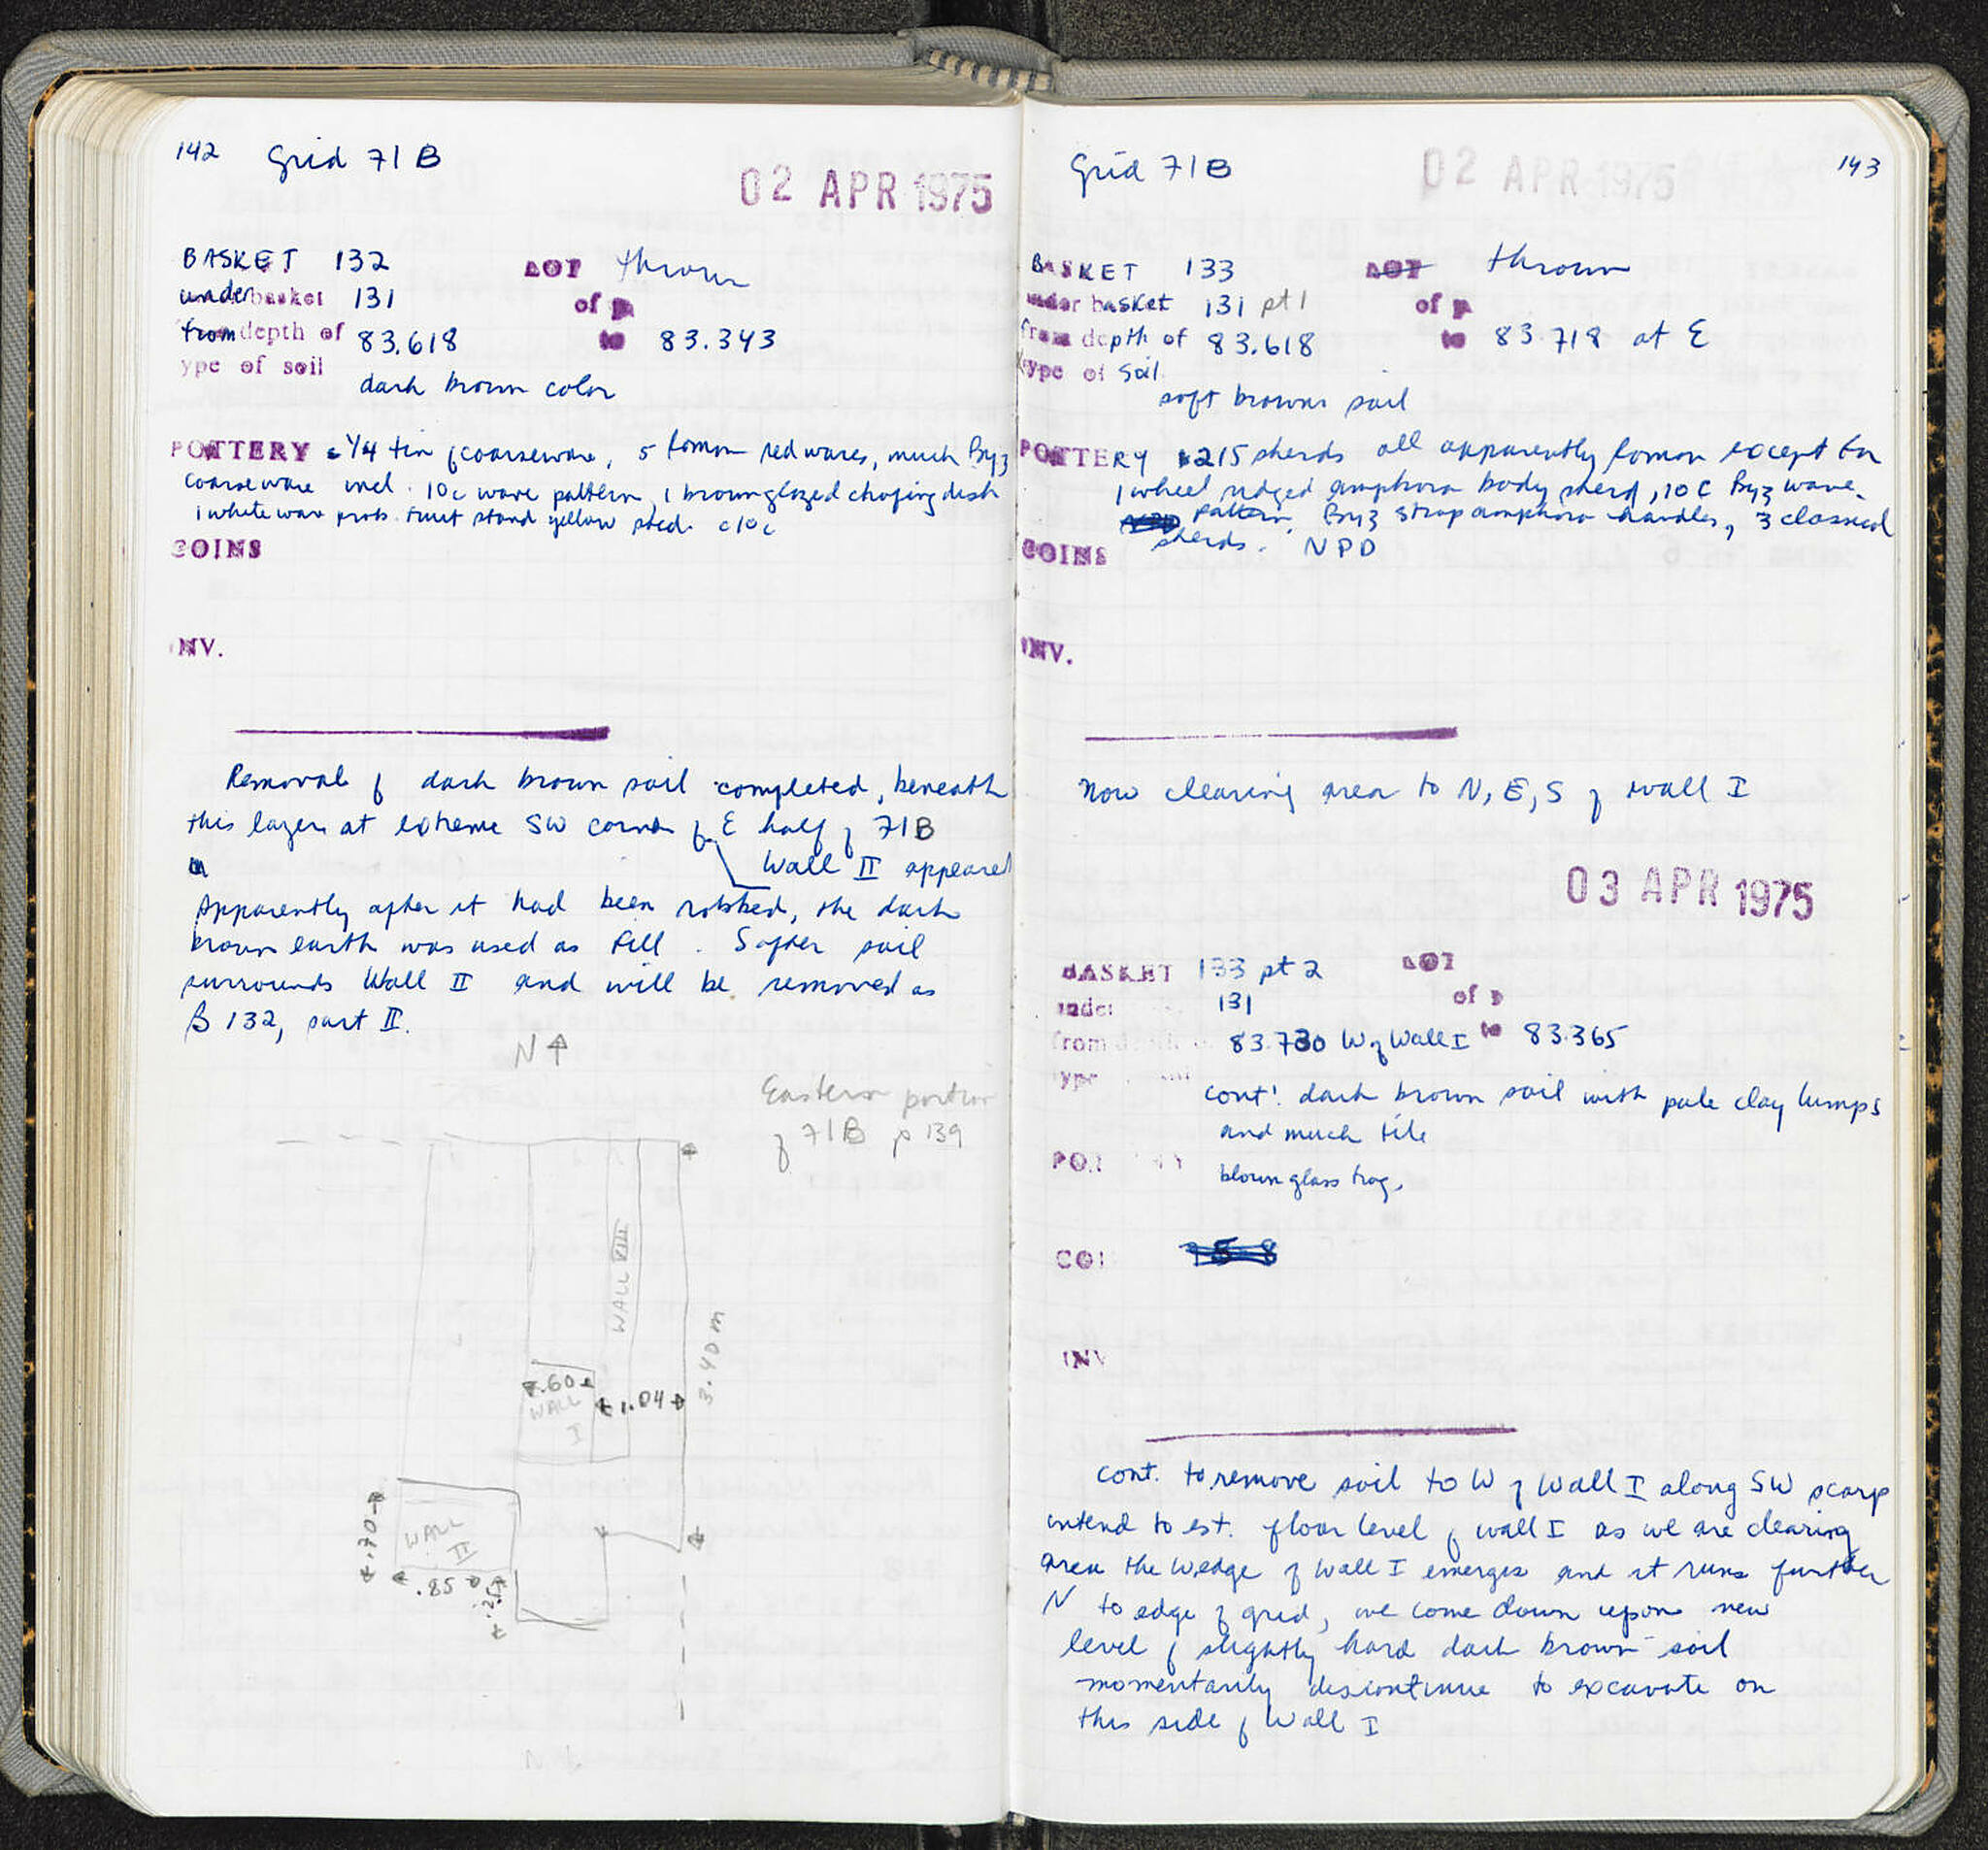 142 Grid 71 B
02 APR 1975
BASKET 132 LOT thrown
under basket 131 of p
from depth of 83.618 to 83.343
ype of soil
dark brown color
POTTERY 1/4 tin of coarseware, 5 Roman red wares, much Byz
coarseware incl. 10c wave pattern, 1 brown glazed chafing dish
1 white ware prob. fruit stand yellow sherd c10c
COINS
INV.
Removal of dark brown soil completed, beneath
this layer at extreme SW corner of E half of 71B
Wall II appeared
Apparently after it had been robbed, the dark
brown earth was used as fill. Softer soil
surrounds Wall II and will be removed as
B 132, part II.
N
Eastern portion
of 71B p 139
WALL VIII
3.40 m
.60
WALL
I
1.04
.70
WALL
II
.85
Grid 71B
02 APR 1975
143
BASKET 133 LOT thrown
under basket 131 pt 1 of p
from depth of 83.618 to 83.718 at E
type of soil
soft brown soil
POTTERY 215 sherds all apparently Roman except for
1 wheel ridged amphora body sherd, 10 C Byz wave
pattern, Byz strap amphora handles, 3 classical
sherds. NPD
COINS
INV.
Now clearing area to N, E, S of wall I
03 APR 1975
BASKET 133 pt 2 LOT
under 131 of p
from 83.730 W of Wall I to 83.365
type
cont. dark brown soil with pale clay lumps
and much tile
POT RY
blown glass frag,
COI
INV
cont. to remove soil to W of Wall I along SW scarp
intend to est. floor level of wall I as we are clearing
area the W edge of Wall I emerges and it runs further
N to edge of grid, we come down upon new
level of slightly hard dark brown soil
momentarily discontinue to excavate on
this side of Wall I